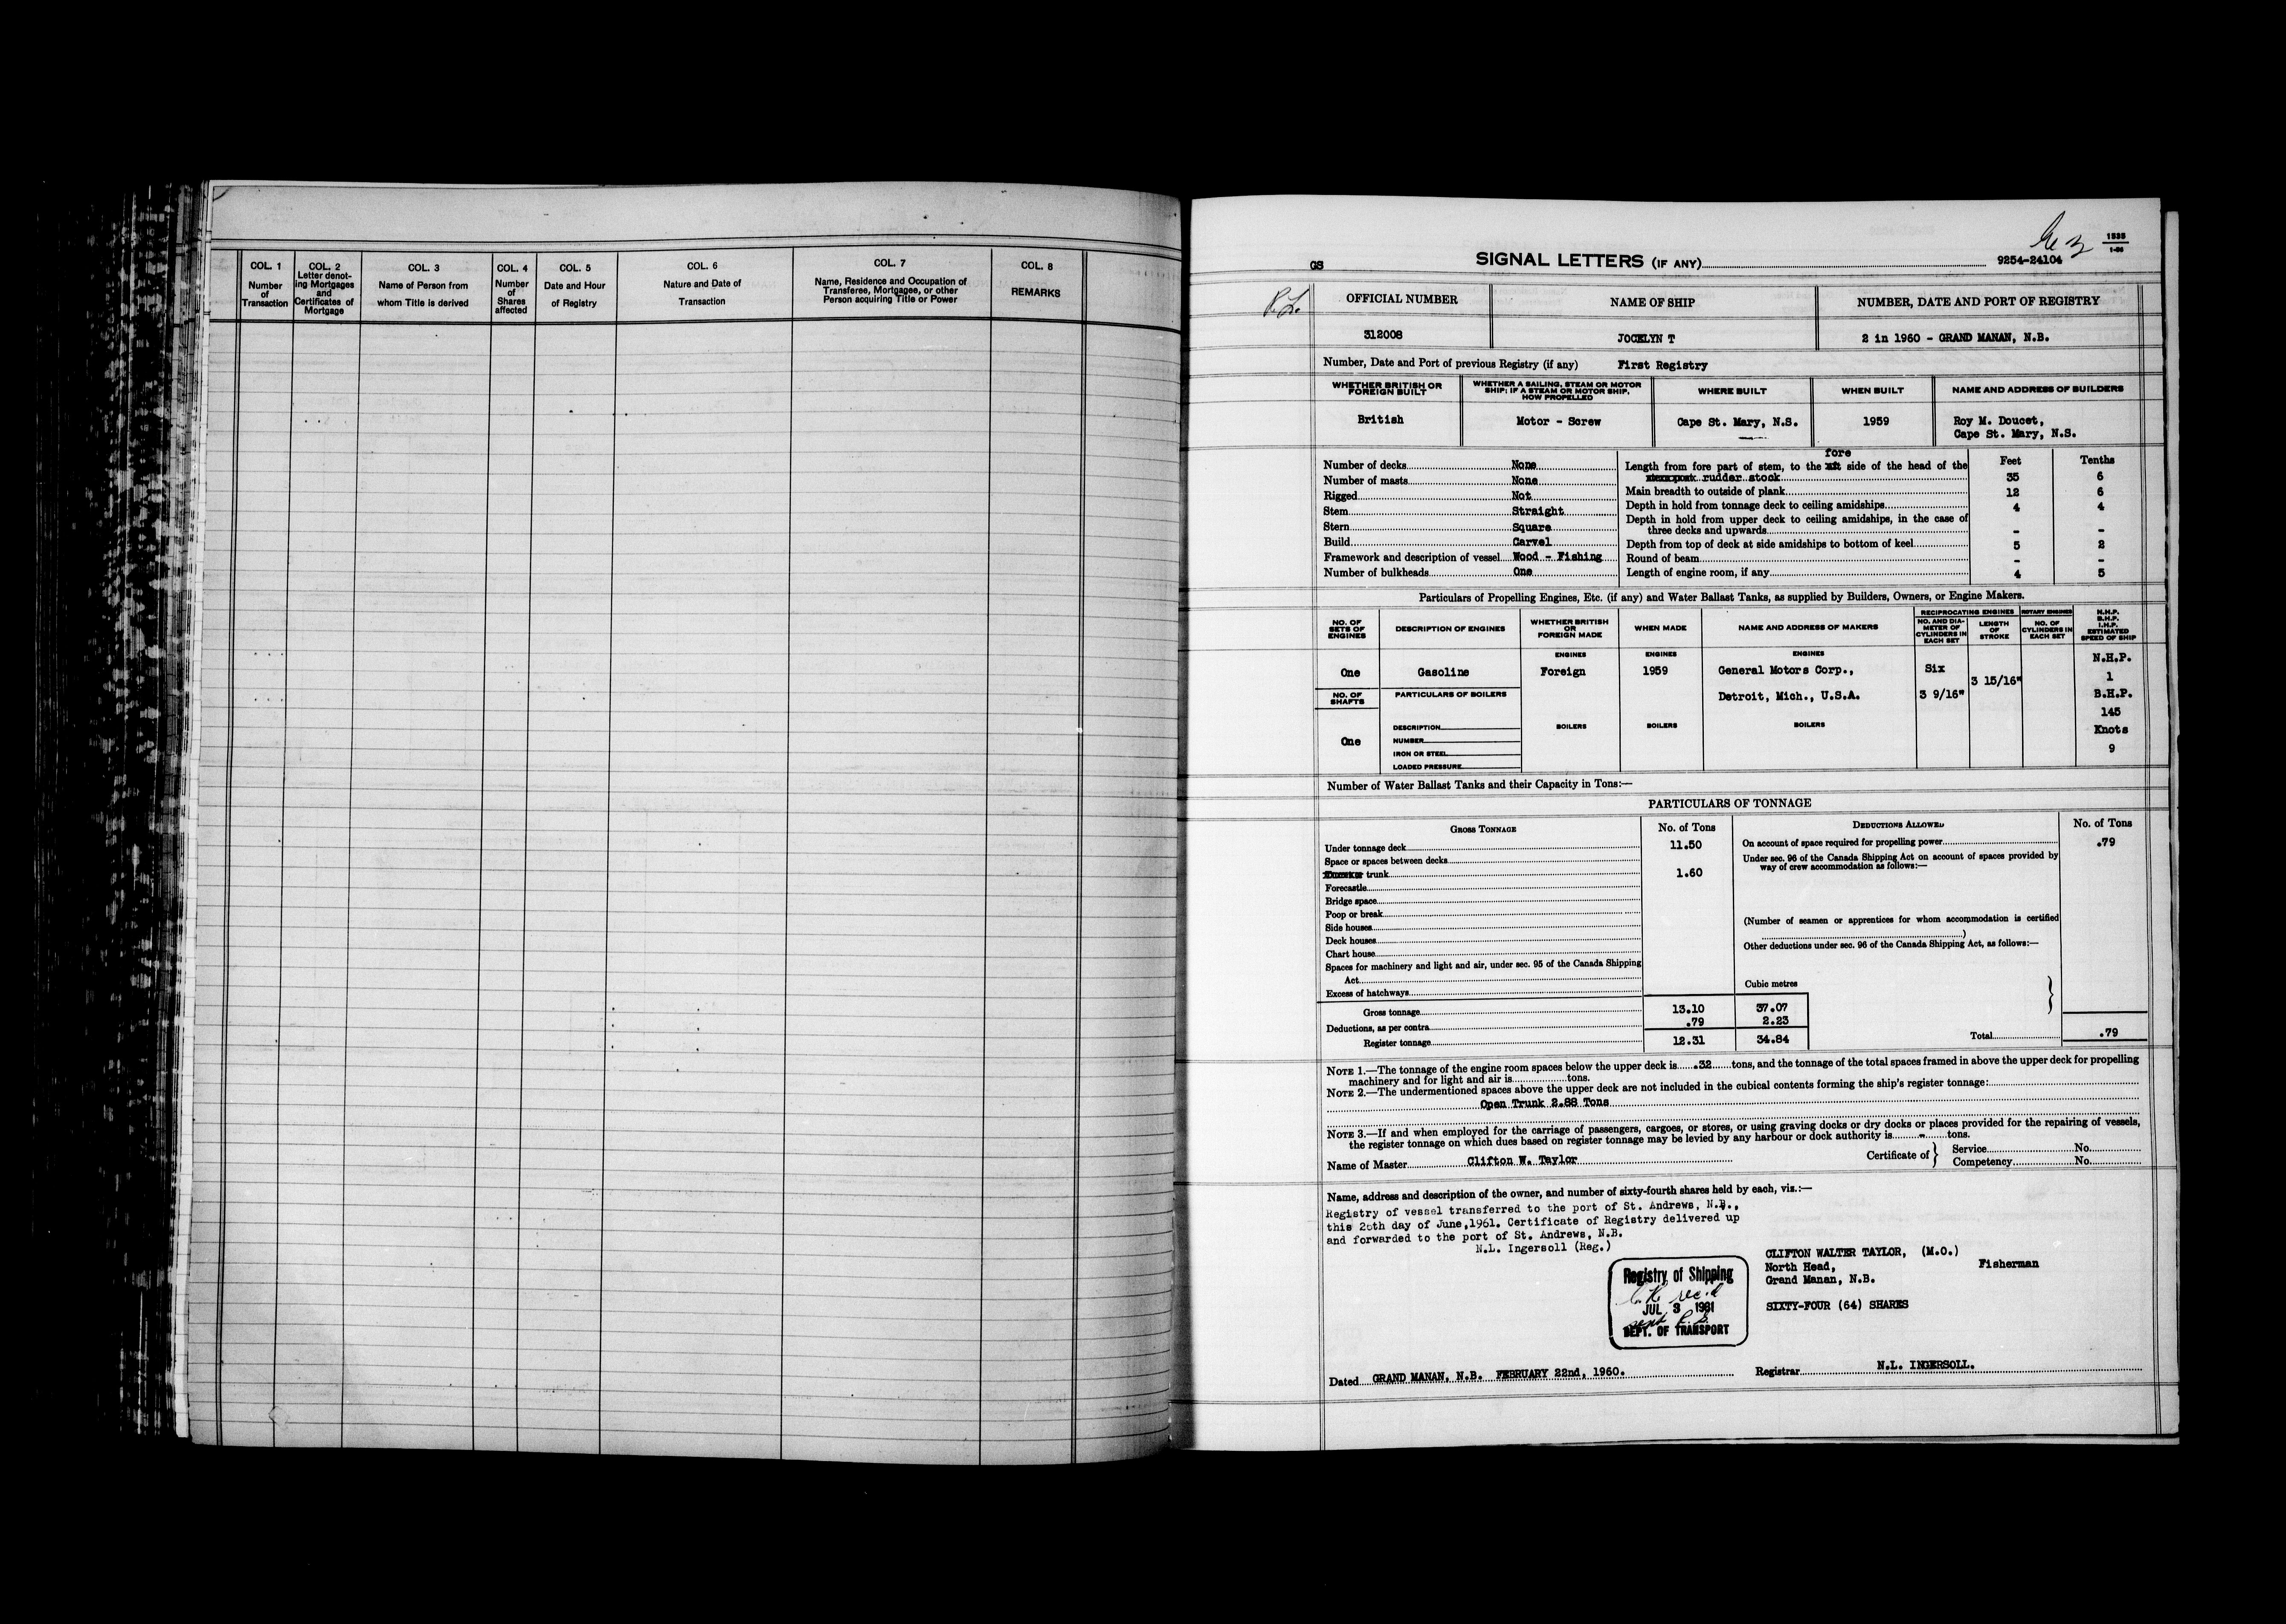 COL. 1
Number
of
Transaction
COL. 2
Letter denot-
ing Mortgages
and
Certificates of
Mortgage
COL. 3
Name of Person from
whom Title is derived
COL. 4
Number
of
Shares
affected
COL. 5
Date and Hour
of Registry
COL. 6
Nature and Date of
Transaction
COL. 7
Name, Residence and Occupation of
Transferee, Mortgagee, or other
Person acquiring Title or Power
COL. 8
REMARKS
GS
SIGNAL LETTERS (IF ANY)
9254-24104
OFFICIAL NUMBER
NAME OF SHIP
NUMBER, DATE AND PORT OF REGISTRY
312008
JOCELYN T
2 in 1960 - GRAND MANAN, N.B.
Number, Date and Port of previous Registry (if any) First Registry
WHETHER BRITISH OR
FOREIGN BUILT
WHETHER A SAILING, STEAM OR MOTOR
SHIP; IF A STEAM OR MOTOR SHIP,
HOW PROPELLED
WHERE BUILT
WHEN BUILT
NAME AND ADDRESS OF BUILDERS
British
Motor - Screw
Cape St. Mary, N.S.
1959
Roy M. Doucet,
Cape St. Mary, N.S.
Number of decks None
Number of masts None
Rigged Not
Stem Straight
Stern Square
Build Carvel
Framework and description of vessel Wood - Fishing
Number of bulkheads One
Feet Tenths
fore
Length from fore part of stem, to the aft side of the head of the
rudder stock 35 6
Main breadth to outside of plank 12 6
Depth in hold from tonnage deck to ceiling amidships 4 4
Depth in hold from upper deck to ceiling amidships, in the case of
three decks and upwards - -
Depth from top of deck at side amidships to bottom of keel 5 2
Round of beam - -
Length of engine room, if any 4 5
Particulars of Propelling Engines, Etc. (if any) and Water Ballast Tanks, as supplied by Builders, Owners, or Engine Makers.
NO. OF
SETS OF
ENGINES
DESCRIPTION OF ENGINES
WHETHER BRITISH
OR
FOREIGN MADE
WHEN MADE
NAME AND ADDRESS OF MAKERS
RECIPROCATING ENGINES
NO. AND DIA-
METER OF
CYLINDERS IN
EACH SET
LENGTH
OF
STROKE
ROTARY ENGINES
NO. OF
CYLINDERS IN
EACH SET
N.H.P.
B.H.P.
I.H.P.
ESTIMATED
SPEED OF SHIP
ENGINES
ENGINES
ENGINES
One
Gasoline
Foreign
1959
General Motors Corp.,
Detroit, Mich., U.S.A.
Six
3 9/16"
3 15/16"
N.H.P.
1
B.H.P.
145
Knots
9
NO. OF
SHAFTS
One
PARTICULARS OF BOILERS
DESCRIPTION
NUMBER
IRON OR STEEL
LOADED PRESSURE
BOILERS
BOILERS
BOILERS
Number of Water Ballast Tanks and their Capacity in Tons:—
PARTICULARS OF TONNAGE
GROSS TONNAGE
No. of Tons
Under tonnage deck 11.50
Space or spaces between decks
trunk 1.60
Forecastle
Bridge space
Poop or break
Side houses
Deck houses
Chart house
Spaces for machinery and light and air, under sec. 95 of the Canada Shipping
Act
Excess of hatchways
Cubic metres
Gross tonnage 13.10 37.07
Deductions, as per contra .79 2.23
Register tonnage 12.31 34.84
DEDUCTIONS ALLOWED
No. of Tons
On account of space required for propelling power .79
Under sec. 96 of the Canada Shipping Act on account of spaces provided by
way of crew accommodation as follows:—
(Number of seamen or apprentices for whom accommodation is certified
)
Other deductions under sec. 96 of the Canada Shipping Act, as follows:—
Total .79
NOTE 1.—The tonnage of the engine room spaces below the upper deck is .32 tons, and the tonnage of the total spaces framed in above the upper deck for propelling
machinery and for light and air is tons.
NOTE 2.—The undermentioned spaces above the upper deck are not included in the cubical contents forming the ship's register tonnage:
Open Trunk 2.88 Tons
NOTE 3.—If and when employed for the carriage of passengers, cargoes, or stores, or using graving docks or dry docks or places provided for the repairing of vessels,
the register tonnage on which dues based on register tonnage may be levied by any harbour or dock authority is - tons.
Name of Master Clifton W. Taylor
Certificate of } Service No.
Competency No.
Name, address and description of the owner, and number of sixty-fourth shares held by each, viz.:—
Registry of vessel transferred to the port of St. Andrews, N.B.,
this 26th day of June,1961. Certificate of Registry delivered up
and forwarded to the port of St. Andrews, N.B.
N.L. Ingersoll (Reg.)
CLIFTON WALTER TAYLOR, (M.O.)
North Head, Fisherman
Grand Manan, N.B.
SIXTY-FOUR (64) SHARES
Registry of Shipping
JUL 3 1961
DEPT. OF TRANSPORT
Dated GRAND MANAN, N.B. FEBRUARY 22nd, 1960.
Registrar N.L. INGERSOLL.